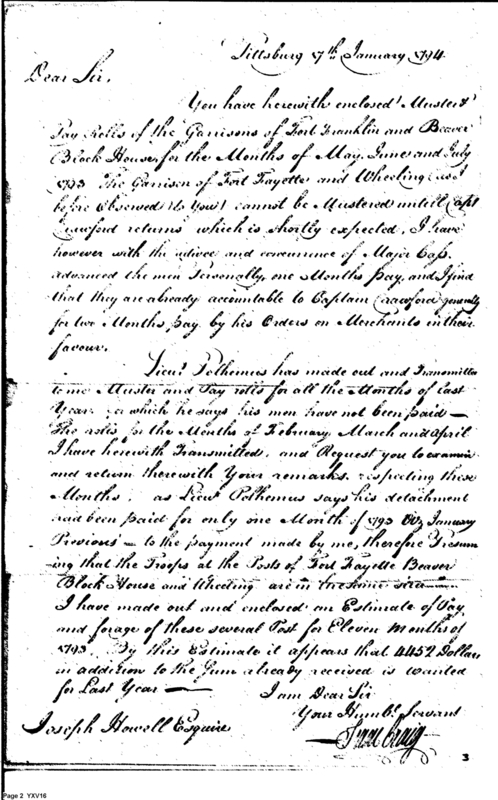 Pittsburg 17th January 1794
Dear Sir,
You have herewith enclosed Muster &
Pay Rolls of the Garrisons of Fort Franklin and Beaver
Block House, for the Months of May, June and July
1793 The Garrison of Fort Fayette and Wheeling (as I
before observed to You) cannot be Mustered untill Capt
Crawford returns which is shortly expected, I have
however with the advice and concurrence of Major Cass.
advanced the men Personally, one Months pay, and I find
that they are already accountable to Captain Crawford generally
for two Months, pay by his Orders on Merchants in their
favour.
Lieut Polhemus has made out and Transmitted
to me Muster and Pay rolls for all the Months of last
Year for which he says his men have not been paid —
The rolls for the Months of February, March and April
I have herewith Transmitted, and Request you to examin
and return therewith Your remarks respecting these
Months, as Lieut Polhemus says his detachment
had been paid for only one Month of 1793 Viz January
Previous — to the payment made by me, therefore Presum
ing that the Troops at the Posts of Fort Fayette Beaver
Block House and Wheeling are in the same
I have made out and enclosed an Estimate of Pay
and forage of these several Post for Eleven Months of
1793. By this Estimate it appears that 4452 Dollars
in addition to the Sum already received is wanted
for Last Year —
I am Dear Sir
Your Humbl. Servant
Isaac Craig
Joseph Howell Esquire
3
Page 2 YXV16